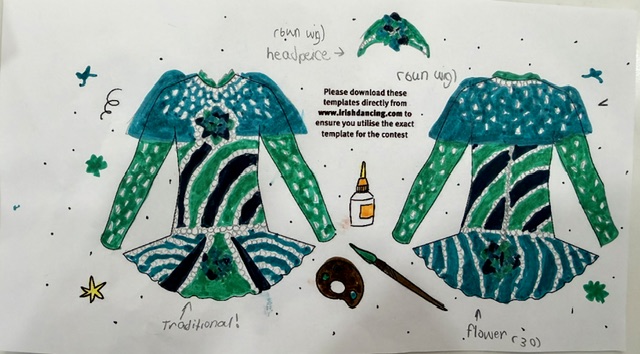 (bun wig)
headpeice →
(bun wig)
Please download these
templates directly from
www.irishdancing.com to
ensure you utilise the exact
template for the contest
Traditional!
flower (3D)